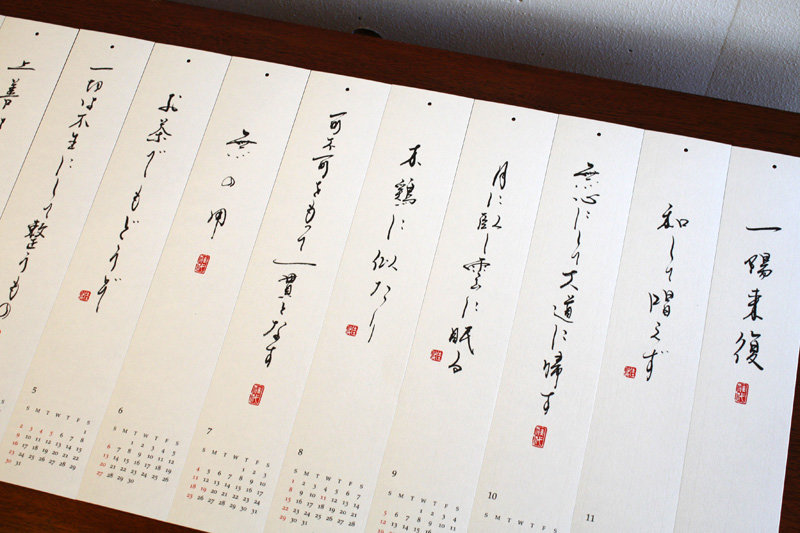 上善
一切は不生にして整うもの
5
S M T W T F S
1
2 3 4 5 6 7 8
9 10 11 12 13 14 15
16 17 18 19 20 21 22
23 24 25 26 27 28 29
30 31
お茶でもどうぞ
6
S M T W T F S
1 2 3 4 5
6 7 8 9 10 11 12
13 14 15 16 17 18 19
20 21 22 23 24 25 26
27 28 29 30
無の用
7
S M T W T F S
1 2 3
4 5 6 7 8 9 10
11 12 13 14 15 16 17
18 19 20 21 22 23 24
25 26 27 28 29 30 31
可不可をもって一貫となす
8
S M T W T F S
1 2 3 4 5 6 7
8 9 10 11 12 13 14
15 16 17 18 19 20 21
22 23 24 25 26 27 28
29 30 31
木鶏に似たり
9
S M T W T F S
1 2 3 4
5 6 7 8 9 10 11
12
月に臥し雲に眠る
10
S M T W T F S
無心にして大道に帰す
11
和して唱えず
一陽来復